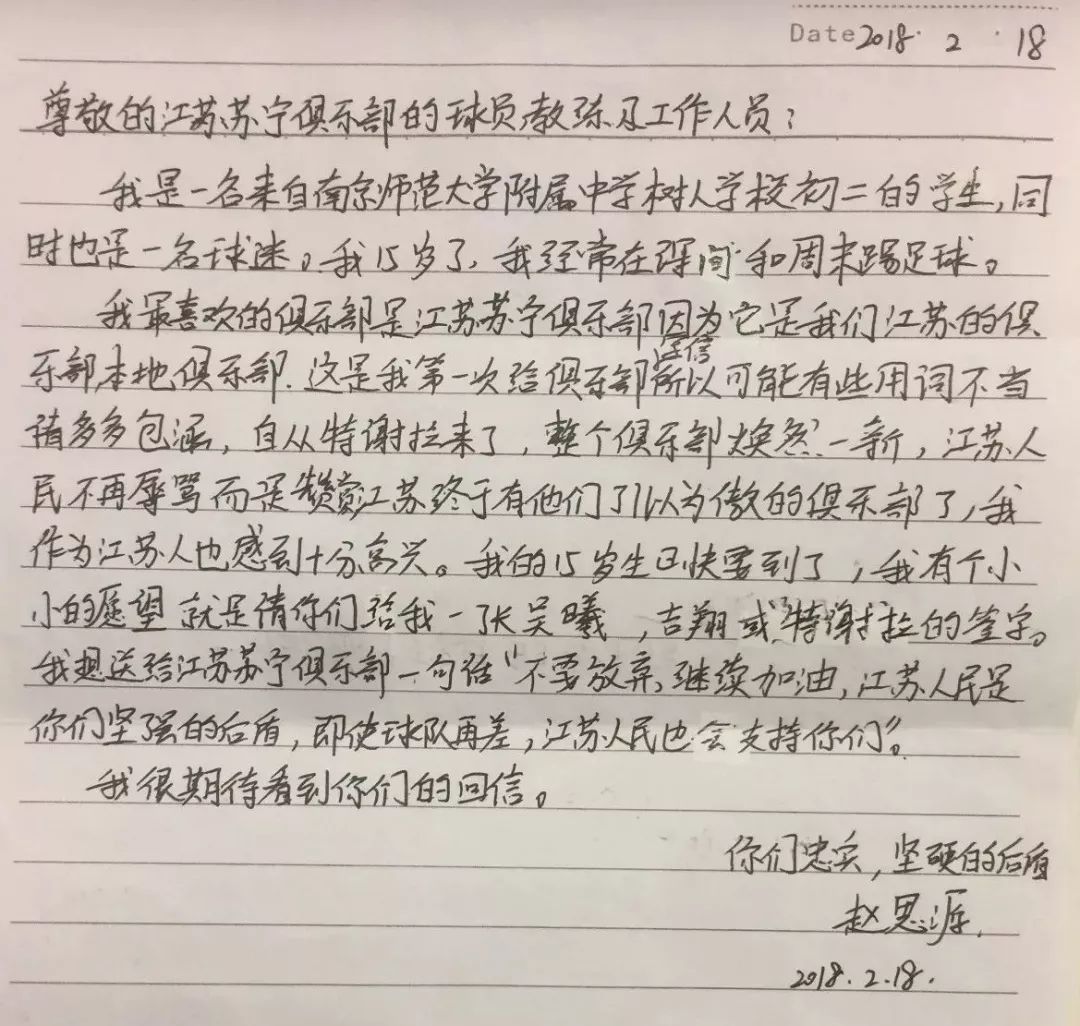 Date 2018. 2 . 18
尊敬的江苏苏宁俱乐部的球员教练及工作人员:
我是一名来自南京师范大学附属中学树人学校初二的学生,同
时也是一名球迷。我15岁了,我经常在课间和周末踢足球。
我最喜欢的俱乐部是江苏苏宁俱乐部因为它是我们江苏的俱
乐部,本地俱乐部.这是我第一次给俱乐部写信所以可能有些用词不当
请多多包涵,自从特谢拉来了,整个俱乐部焕然一新,江苏人
民不再辱骂而是赞赏江苏终于有他们引以为傲的俱乐部了,我
作为江苏人也感到十分高兴。我的15岁生日快要到了,我有个小
小的愿望就是请你们给我一张吴曦,吉翔或特谢拉的签字。
我想送给江苏苏宁俱乐部一句话“不要放弃,继续加油,江苏人民是
你们坚强的后盾,即使球队再差,江苏人民也会支持你们”。
我很期待看到你们的回信。
你们忠实,坚硬的后盾
赵思涯.
2018.2.18.